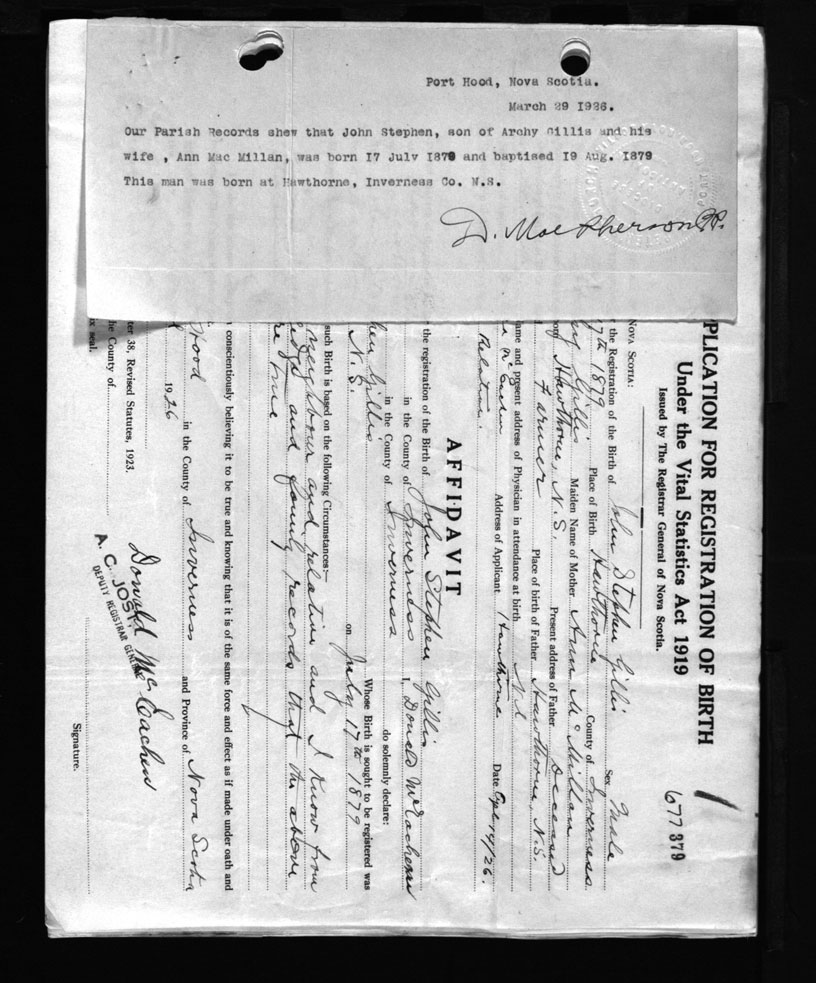 Port Hood, Nova Scotia.
March 29 1926.
Our Parish Records shew that John Stephen, son of Archy Gillis and his
wife , Ann Mac Millan, was born 17 July 1879 and baptised 19 Aug. 1879
This man was born at Hawthorne, Inverness Co. N.S.
D. MacPherson
PPLICATION FOR REGISTRATION OF BIRTH
Under the Vital Statistics Act 1919
Issued by The Registrar General of Nova Scotia.
677 379
NOVA SCOTIA:
the Registration of the Birth of John Stephen Gillis Sex Male
7th 1879 Place of Birth Hawthorne County of Inverness
Gillis Maiden Name of Mother Ann McMillan
Hawthorne, N.S. Present address of Father Deceased
Farmer Place of birth of Father Hawthorne, N.S.
ame and present address of Physician in attendance at birth Nil
McEachern Address of Applicant Hawthorne Date 14/26.
Relation.
AFFIDAVIT
the registration of the Birth of John Stephen Gillis
in the County of Inverness I, Donald McEachern
in the County of Inverness do solemnly declare:
hen Gillis Whose Birth is sought to be registered was
N.S. on July 17th 1879
such Birth is based on the following Circumstances:—
neighbour and relative and I know from
and family records that the above
re true
conscientiously believing it to be true and knowing that it is of the same force and effect as if made under oath and
Hood in the County of Inverness and Province of Nova Scotia
1926
Donald McEachern
Signature.
A. C. JOST
DEPUTY REGISTRAR GENERAL
ter 38, Revised Statutes, 1923.
he County of
ix seal.